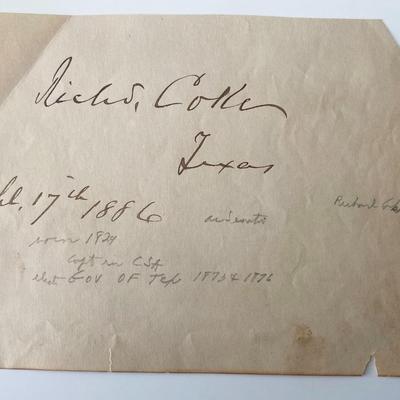 Richd. Coke
Texas
17th 1886
Richard Coke
born 1829
Capt in CSA
elect GOV OF Tex 1873 & 1876